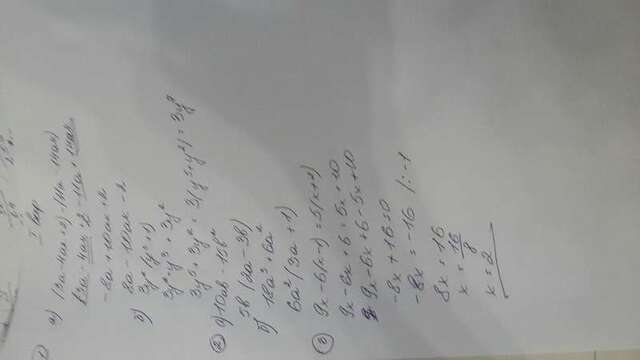 I вар
①
а) (3a-4ax+2)-(11a-14ax)
3a-4ax+2-11a+14ax
-8a+10ax+2
8a-10ax-2
б) 3y²(y³+1)
3y²·y³+3y²
② а) 10ab-15b²
5b(2a-3b)
б) 18a³+6a²
6a²(3a+1)
③ 9x-6(x-1)=5(x+2)
9x-6x+6=5x+10
9x-6x+6-5x+10
-8x+16=0
-8x=-16 |:-1
8x=16
x=16/8
x=2